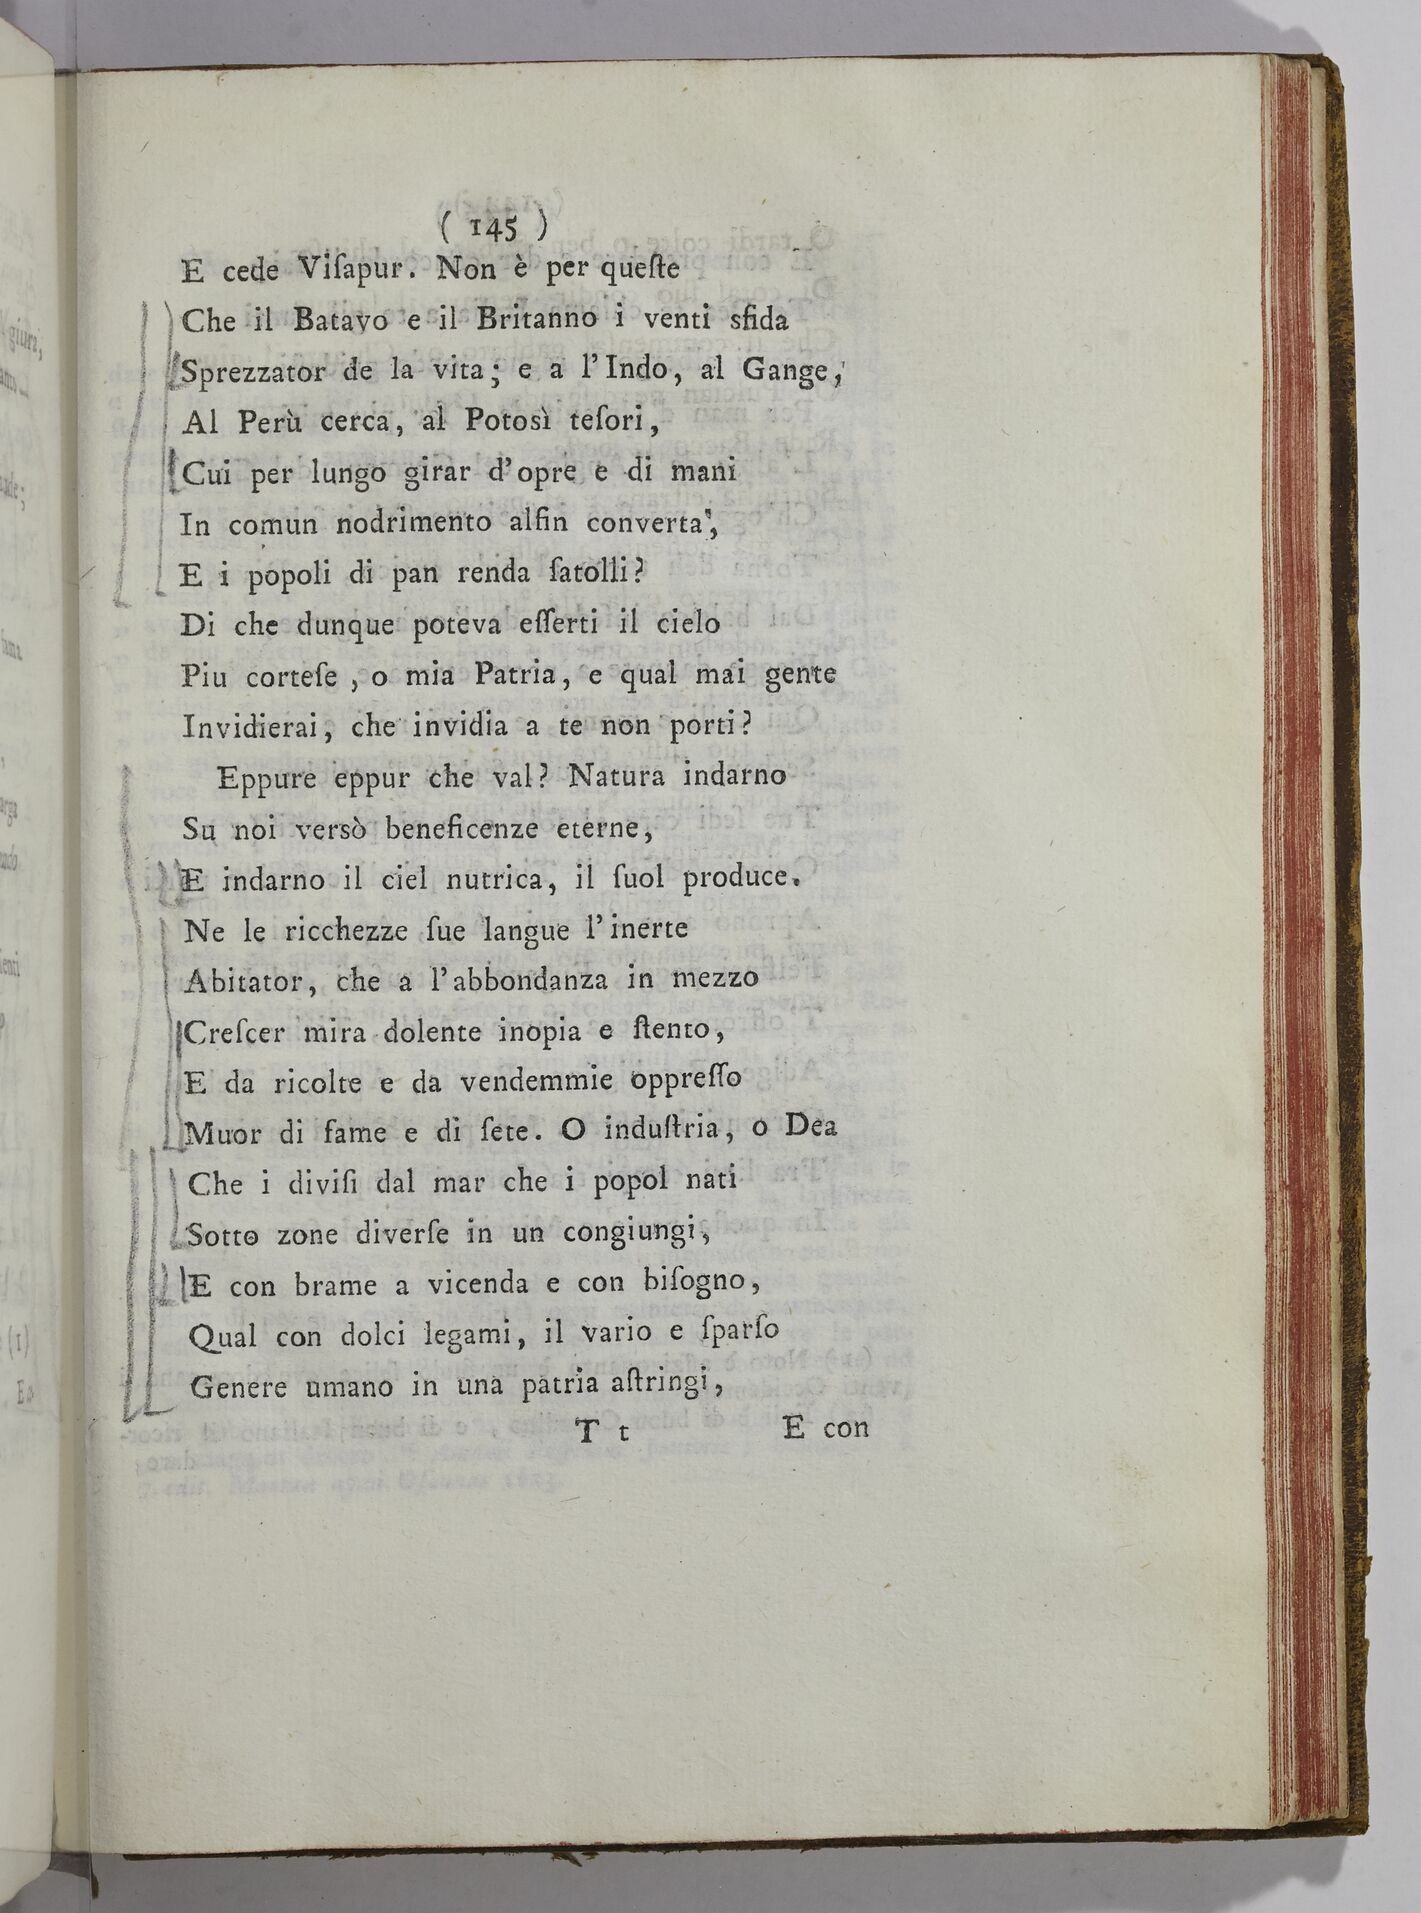 ( 145 )
E cede Viſapur. Non è per queſte
Che il Batavo e il Britanno i venti sfida
Sprezzator de la vita; e a l'Indo, al Gange,
Al Perù cerca, al Potosì teſori,
Cui per lungo girar d'opre e di mani
In comun nodrimento alfin converta,
E i popoli di pan renda ſatolli?
Di che dunque poteva eſſerti il cielo
Piu corteſe, o mia Patria, e qual mai gente
Invidierai, che invidia a te non porti?
Eppure eppur che val? Natura indarno
Su noi versò beneficenze eterne,
E indarno il ciel nutrica, il ſuol produce.
Ne le ricchezze ſue langue l'inerte
Abitator, che a l'abbondanza in mezzo
Creſcer mira dolente inopia e ſtento,
E da ricolte e da vendemmie oppreſſo
Muor di fame e di ſete. O induſtria, o Dea
Che i diviſi dal mar che i popol nati
Sotto zone diverſe in un congiungi,
E con brame a vicenda e con biſogno,
Qual con dolci legami, il vario e ſparſo
Genere umano in una patria aſtringi,
T t E con